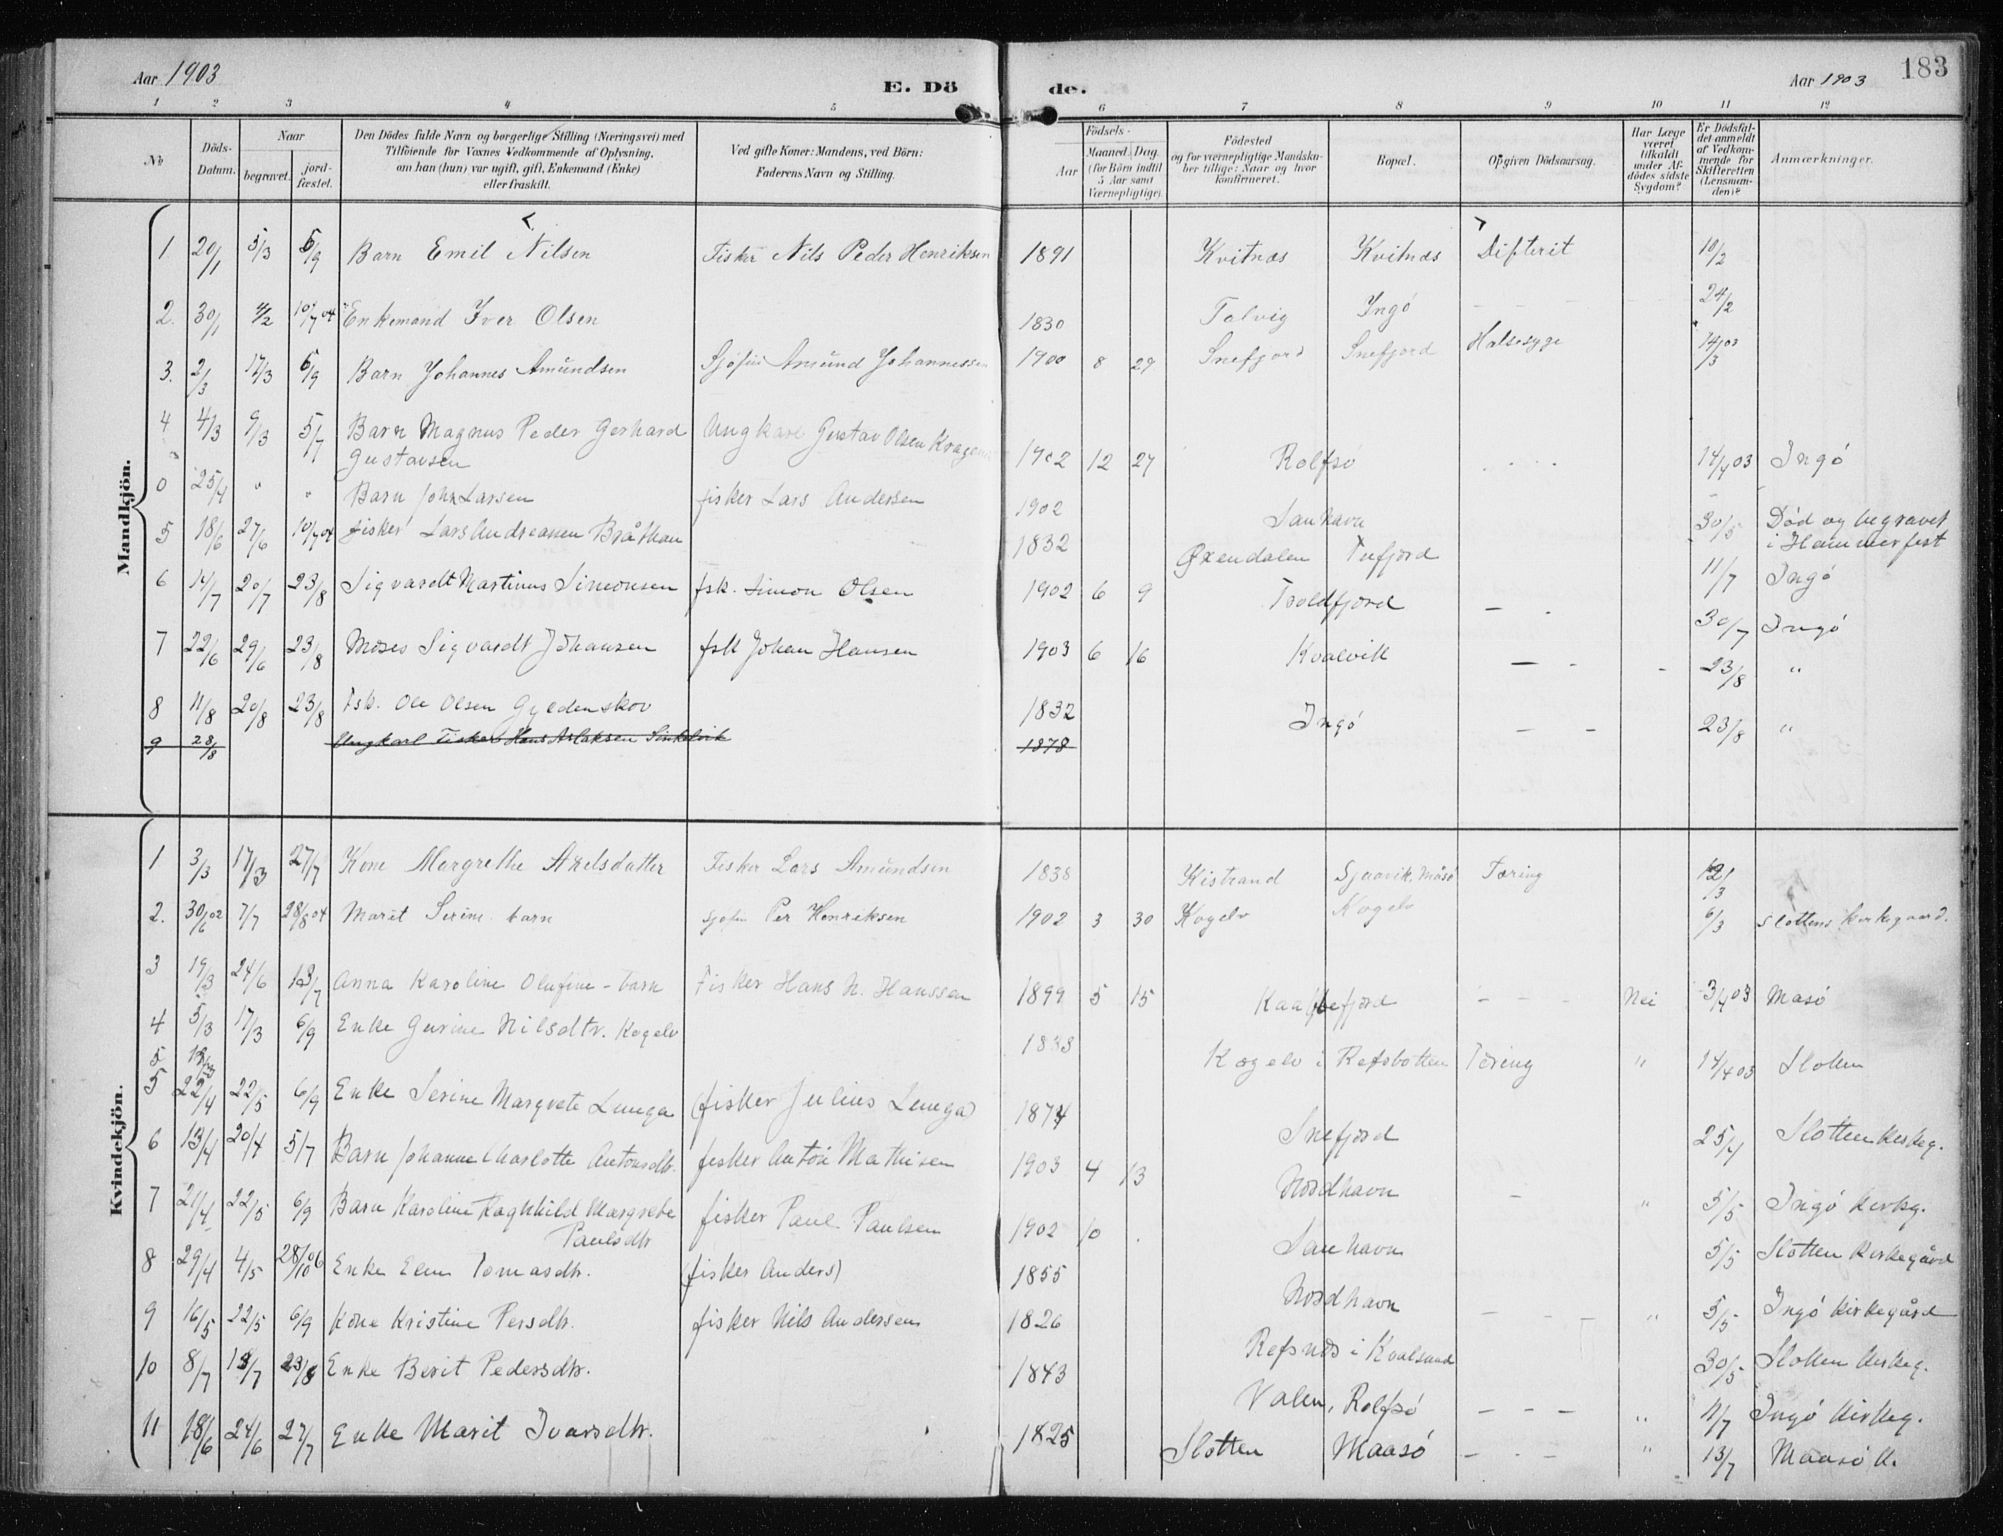 Aar 1903
E. Dö
de.
Aar 1903
183
1 2 3 4 5 6 7 8 9 10 11 12
No
Döds-Datum.
Naar
begravet.
jord-fæstet.
Den Dödes fulde Navn og borgerlige Stilling (Næringsvei) med
Tilföiende for Voxnes Vedkommende af Oplysning,
om han (hun) var ugift, gift, Enkemand (Enke)
eller fraskilt.
Ved gifte Koner: Mandens, ved Börn:
Faderens Navn og Stilling.
Födsels-
Aar
Maaned. Dag.
(for Börn indtil
5 Aar samt
Værnepligtige).
Födested
og for værnepligtige Mandska-
ber tillige: Naar og hvor
konfirmeret.
Bopæl.
Opgiven Dödsaarsag.
Har Læge
været
tilkaldt
under Af-
dödes sidste
Sygdom?
Er Dödsfal-
det anmeldt
af Vedkom-
mende for
Skifteretten
(Lensman-
den)?
Anmærkninger.
Mandkjön.
1 20/1 5/3 6/9 Barn Emil Nilsen Fisker Nils Peder Henriksen 1891 Kvitnæs Kvitnæs Difterit 10/2
2. 30/1 4/2 10/7 04 Enkemand Iver Olsen 1830 Talvig Ingö - - - - 24/2
3. 2/3 17/3 6/9 Barn Johannes Amundsen Sjöfin Amund Johannessen 1900 8 29 Snefjord Snefjord Halssyge 14/3 03
4 4/3 9/3 5/7 Barn Magnus Peder Gerhard Gustavsen Ungkarl Gustav Olsen 1902 12 27 Rolfsö 14/4 03 Ingö
0 25/4 " " Barn John Larsen fisker Lars Andersen 1902 Sanhavn 30/5 Död og begravet
i Hammerfest
5 18/6 27/6 10/7 04 fisker Lars Andreasen Bråthau 1832 Øxendalen Tufjord 11/7 Ingö
6 14/7 20/7 23/8 Sigvardt Martinus Simonsen fsk. Simon Olsen 1902 6 9 Troldfjord - - 30/7 Ingö
7 22/6 29/6 23/8 Moses Sigvardt Johansen fsk Johan Hansen 1903 6 16 Kvalvik - - - 23/8 "
8 11/8 20/8 23/8 Fsk. Ole Olsen Gyldenskov 1832 Ingö - - 23/8 "
9 28/8 Ungkarl Fisker Hans Aslaksen 1878
Kvindekjön.
1 3/3 17/3 27/7 Kone Margrethe Axelsdatter Fisker Lars Amundsen 1838 Kistrand Måsö Tæring 12/3
2. 30/6 02 7/7 28/8 04 Marit Serine barn sjöfin Per Henriksen 1902 3 30 Kogelv Kogelv 6/3 Slottens Kirkegaard.
3 19/3 24/6 13/7 Anna Karoline Olufine - barn Fisker Hans N. Hanssen 1899 5 15 - - - Nei 3/4 03 Masö
4 5/3 17/3 6/9 Enke Gurine Nilsdtr. Kogelv 1833 Kogelv i Refsbotten Tæring " 14/4 03 Slotten
5
5 22/4 22/5 6/9 Enke Serine Margrete (fisker Julius 1874 Snefjord 25/4 Slotten Kirkeg.
6 13/4 20/4 5/7 Barn Johanne Charlotte Antonsdtr. fisker Anton Mathisen 1903 4 13 Nordhavn - " 5/5 Ingö Kirkg.
7 21/4 22/5 6/9 Barn Karoline Ragnhild Margrete
Paulsdtr fisker Paul Paulsen 1902 10 . Sanhavn 5/5 Slotten Kirkegård
8 29/4 4/5 28/10 06 Enke Elen Tomasdtr. (fisker Anders) 1855 Nordhavn - - " 5/5 Ingö Kirkegård
9 16/5 22/5 6/9 Kone Kristine Persdtr. fisker Nils Andersen 1826 Refsnæs i Kvalsund 30/5 Slotten Kirkeg.
10 8/7 13/7 23/8 Enke Berit Pedersdtr. 1843 Valen, Rolfsö - - - " 11/7 Ingö Kirkeg.
11 18/6 24/6 27/7 Enke Marit Ivarsdtr. 1825 Slotten Maasö - - - " 13/7 Maasö K.